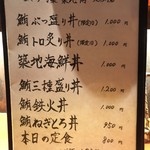 鮪ぶつ盛り丼(限定10) 1.000円
鮪トロ炙り丼(限定10) 1.000円
築地海鮮丼 1.000円
鮪三種盛り丼 1.200円
鮪鉄火丼 1.000円
鮪ねぎとろ丼 950円
本日の定食 800円